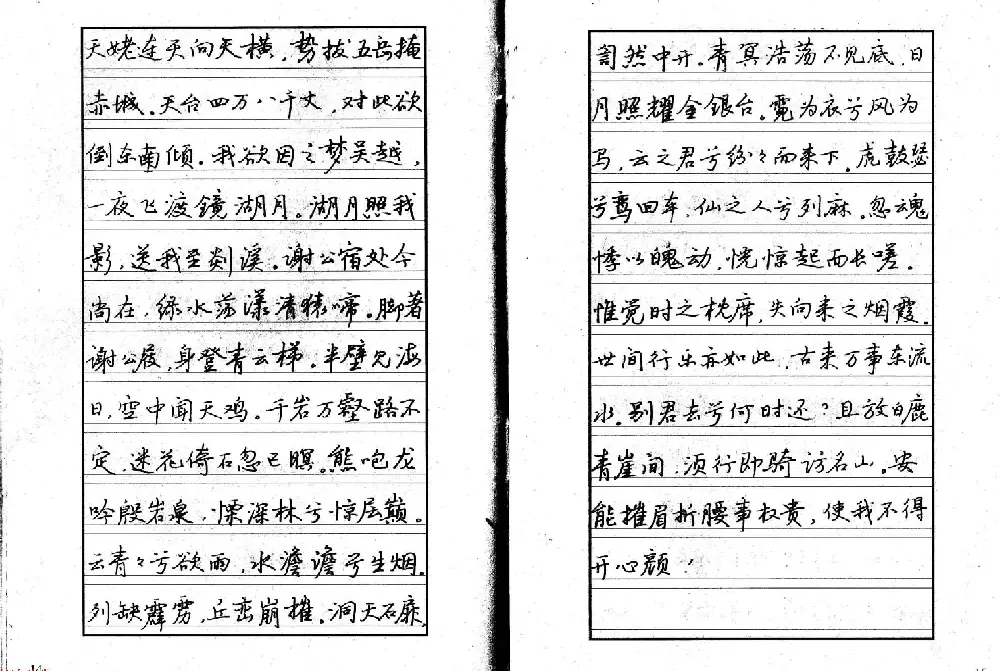 天姥连天向天横，势拔五岳掩
赤城。天台四万八千丈，对此欲
倒东南倾。我欲因之梦吴越，
一夜飞渡镜湖月。湖月照我
影，送我至剡溪。谢公宿处今
尚在，绿水荡漾清猿啼。脚著
谢公屐，身登青云梯。半壁见海
日，空中闻天鸡。千岩万壑路不
定，迷花倚石忽已暝。熊咆龙
吟殷岩泉，慄深林兮惊层巅。
云青々兮欲雨，水澹澹兮生烟。
列缺霹雳，丘峦崩摧。洞天石扉，
訇然中开。青冥浩荡不见底，日
月照耀金银台。霓为衣兮风为
马，云之君兮纷々而来下。虎鼓瑟
兮鸾回车，仙之人兮列麻。忽魂
悸以魄动，恍惊起而长嗟。
惟觉时之枕席，失向来之烟霞。
世间行乐亦如此，古来万事东流
水。别君去兮何时还？且放白鹿
青崖间，须行即骑访名山。安
能摧眉折腰事权贵，使我不得
开心颜！